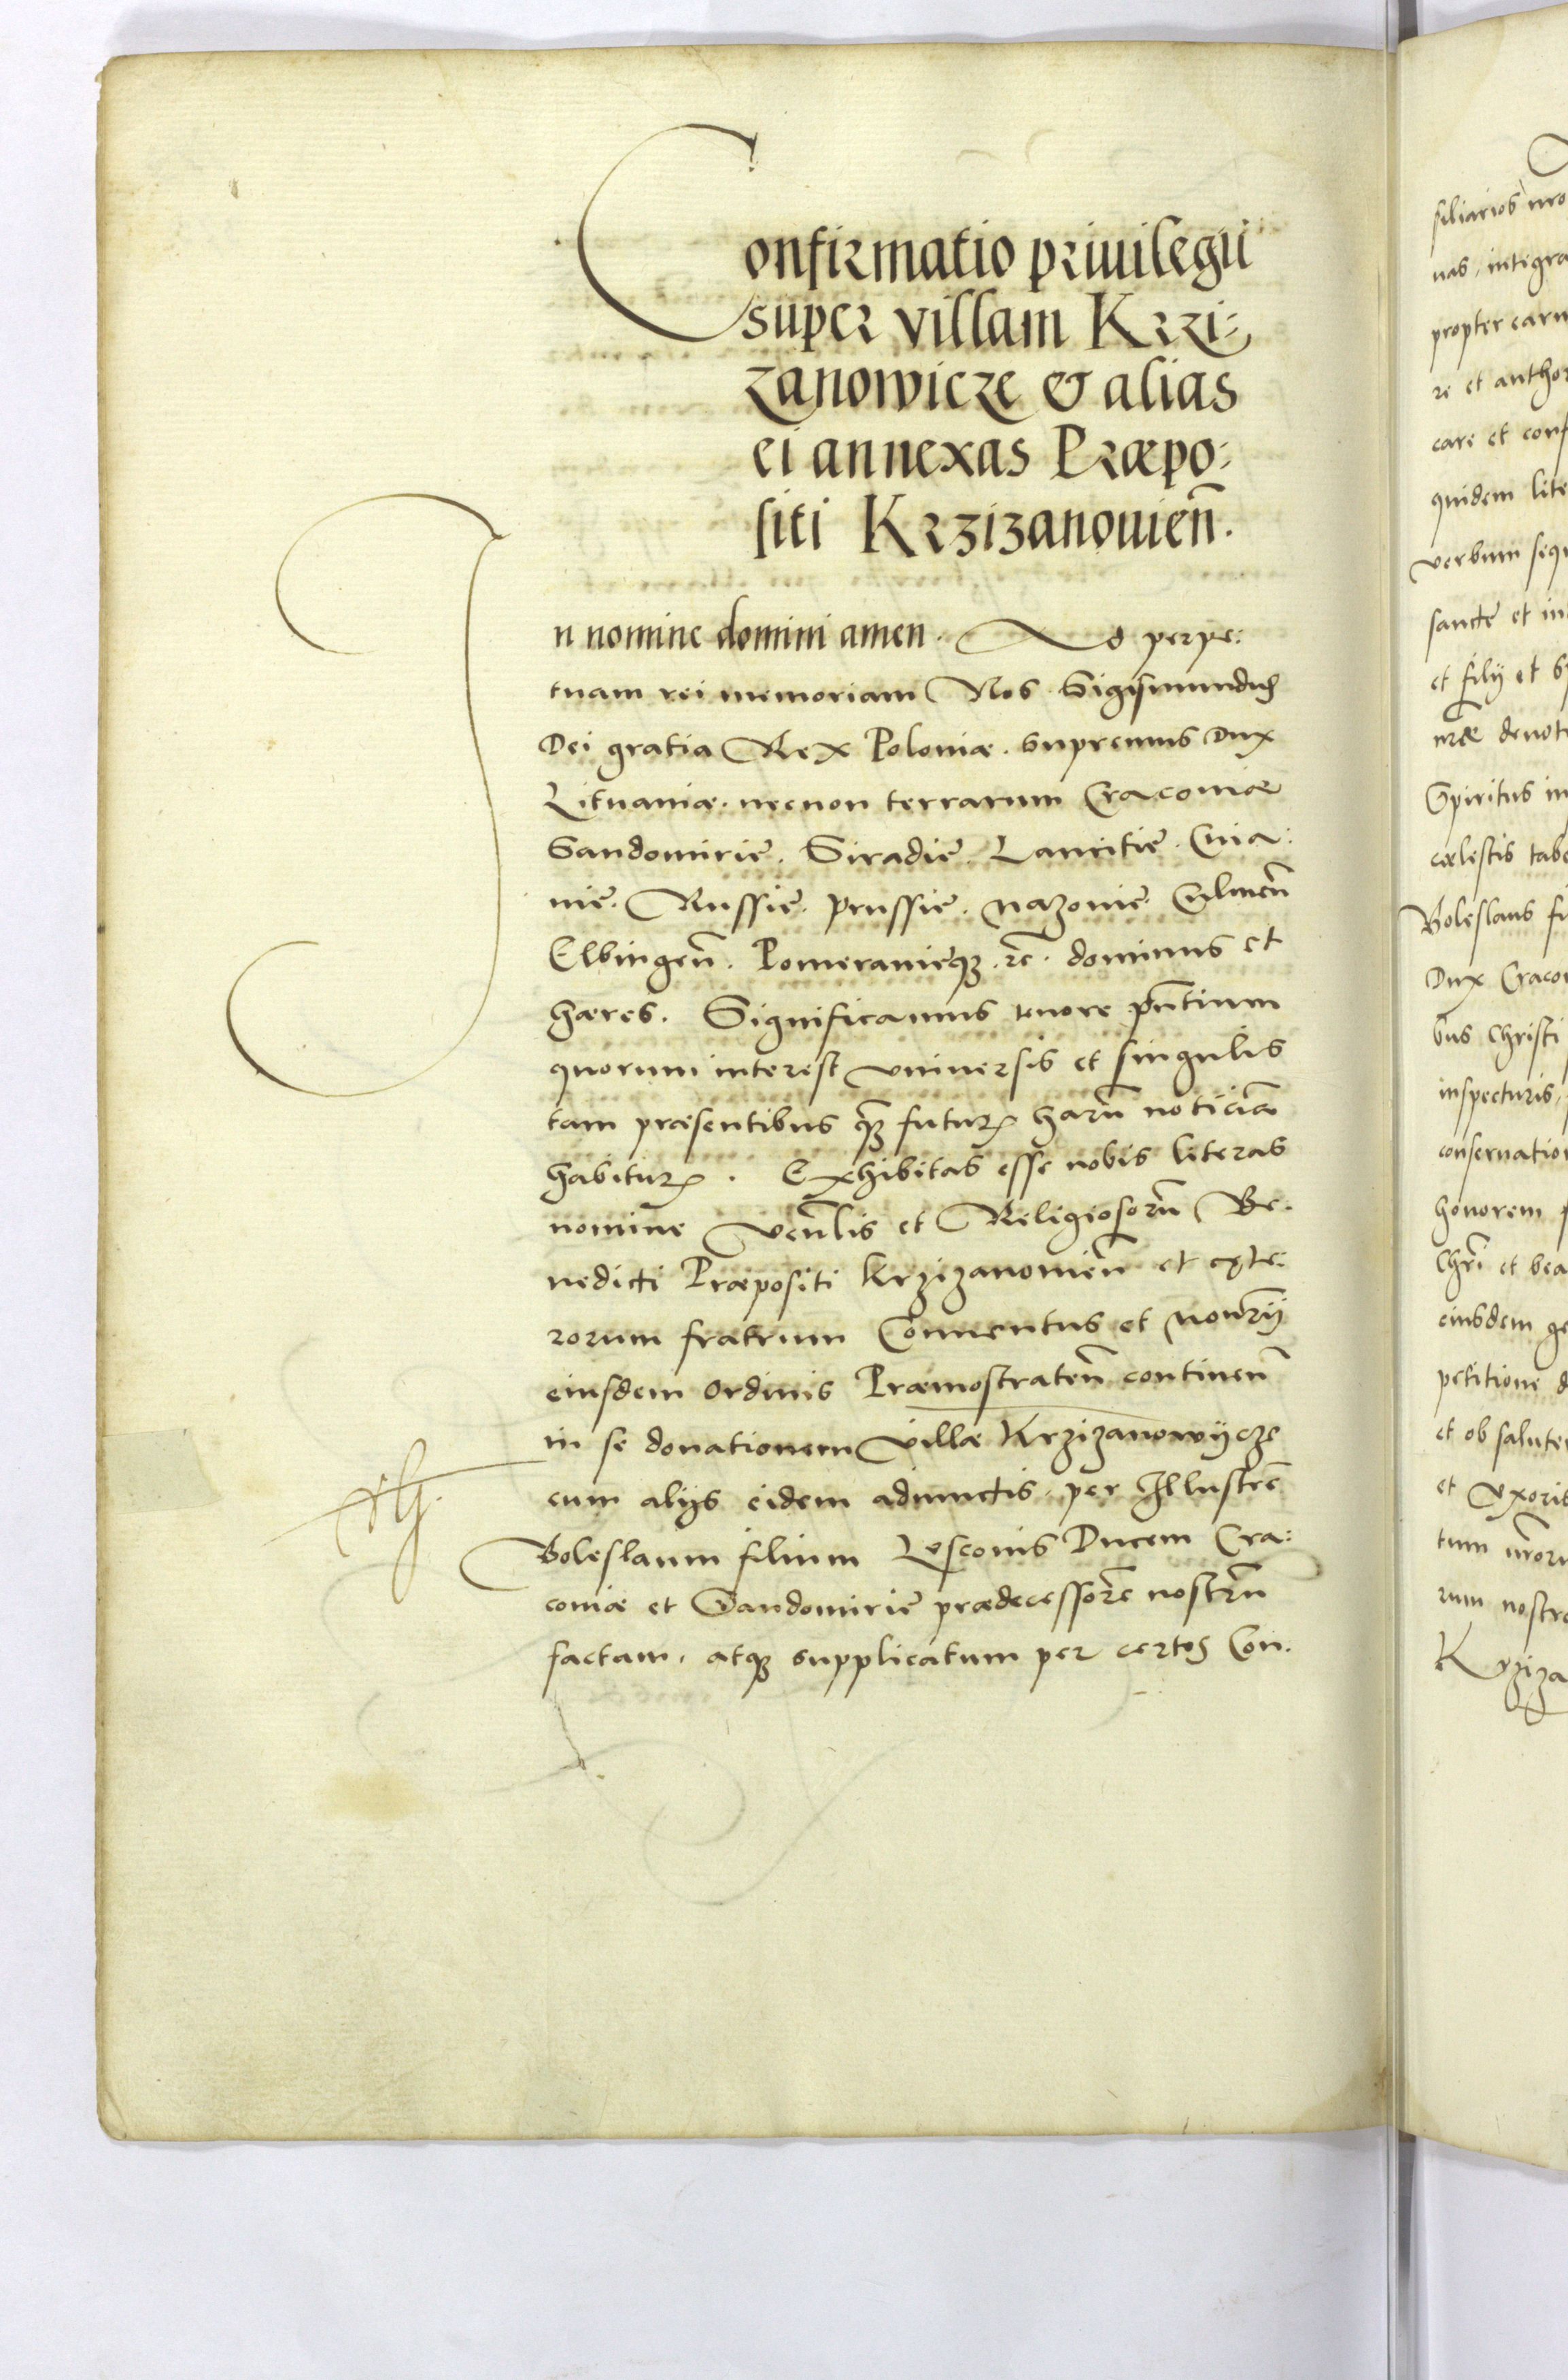 Confirmatio priuilegii
super villam Krzi⸗
zanowicze & alias
ei annexas Præpo⸗
siti Krzizanouien̄.
In nomine domini amen. Ad perpe⸗
tuam rei memoriam Nos Sigismundus
Dei gratia Rex Poloniæ. supremus Dux
Lituaniæ. necnon terrarum Cracouiæ
Sandomirie. Siradie. Lancitie. Cuia⸗
uie. Russie. prussie. mazouie. Culmen̄
Elbingen̄. Pomeranieq3. rc̄. dominus et
hæres. Significamus tenore pn̄tium
quorum interest vniuersis et singulis
tam præsentibus q̄3 futurꝝ harū noticiā
habiturꝝ. Exhibitas esse nobis literas
nomine ven̄lis et Religiosorū Be⸗
nedicti Præpositi Krzizanouien̄ et cęte⸗
rorum fratrum Conuentus et mon̄rij
eiusdem ordinis Præmostraten̄ continen̄
in se donationem villæ Krzizanowycze
cum alijs eidem adiunctis. per Illustrē
Boleslaum filium Lesconis Ducem Cra⸗
couiæ et Sandomirie prædecessorē nostrū
factam, atq3 supplicatum per certos Con⸗
siliarios nro
nas, integra
propter earu
re et author
care et conf
quidem lite
verbum sequ
sancte et in
et filij et
nr̄æ deuot
Spiritus in
cælestis tab
Boleslaus fi
Dux Cracou
bus Christi
inspecturis,
conseruation
honorem
Chr̄i et bea
eiusdem ge
petitione d
et ob salute
et vxoris
tum
rum nostro
Krziza